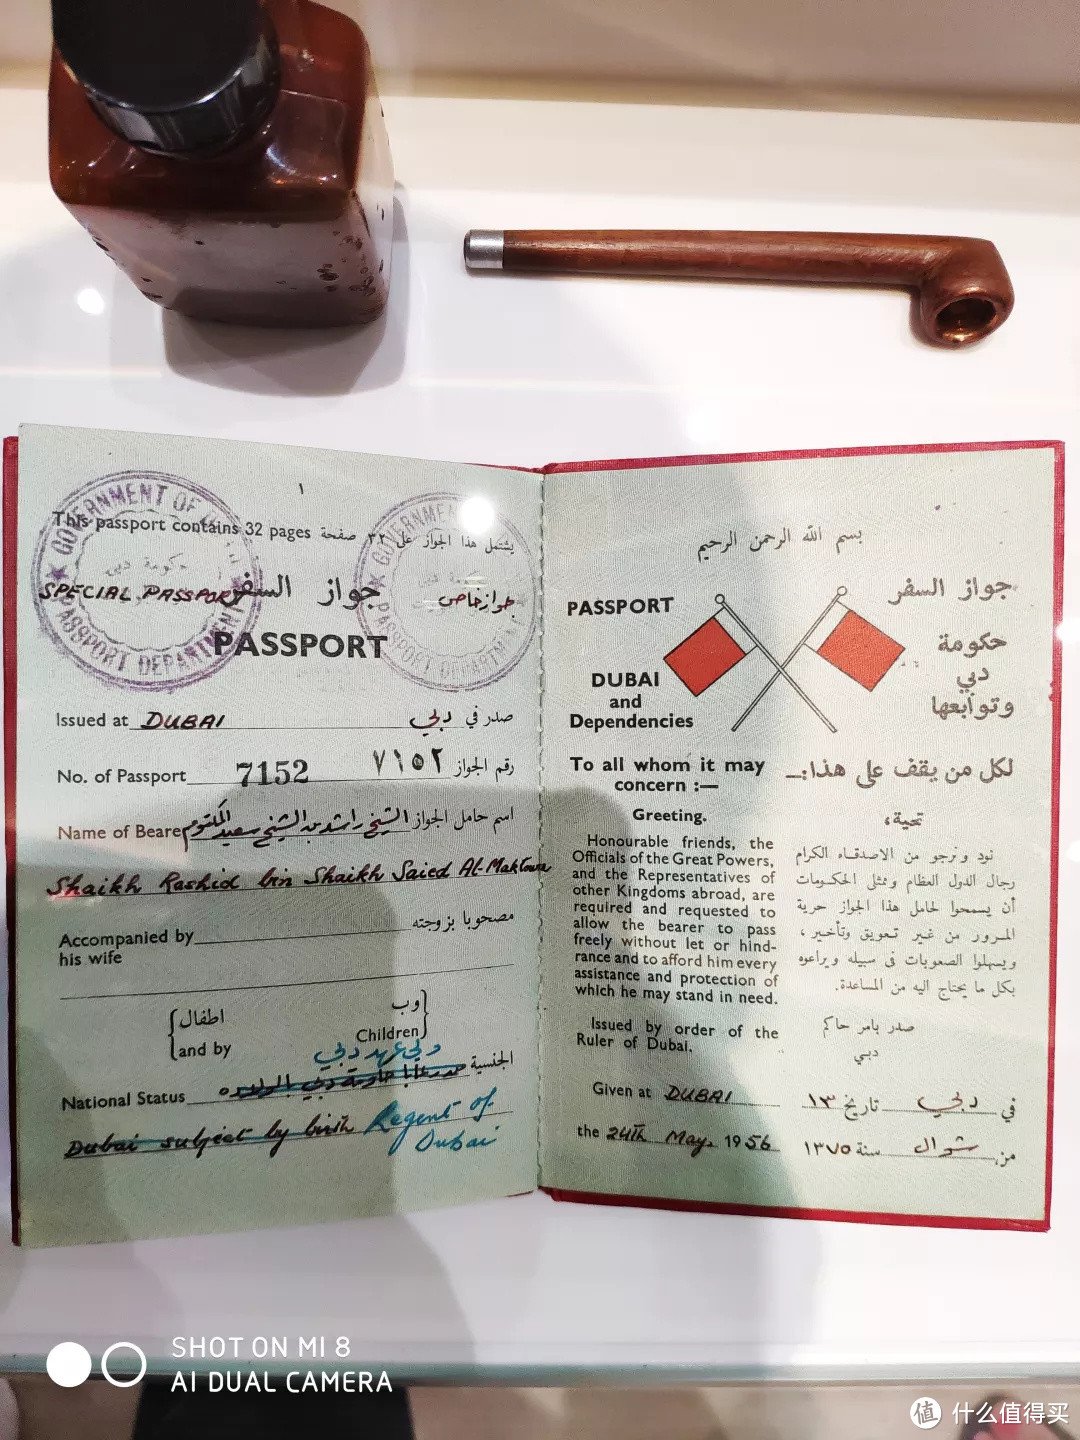 ١
GOVERNMENT OF
حكومة دبي
PASSPORT DEPARTMENT
GOVERNMENT
PASSPORT DEPARTMENT
This passport contains 32 pages يشتمل هذا الجواز على ٣٢ صفحة
SPECIAL PASSPORT جواز السفر جواز خاص
PASSPORT
Issued at DUBAI صدر في دبي
No. of Passport 7152 رقم الجواز ٧١٥٢
Name of Bearer اسم حامل الجواز الشيخ راشد بن الشيخ سعيد المكتوم
Shaikh Rashid bin Shaikh Saied Al-Maktoum
Accompanied by his wife مصحوبا بزوجته
وب اطفال
and by Children
ولي عهد دبي
National Status الجنسية
Dubai subject by birth Regent of
Dubai
بسم الله الرحمن الرحيم
PASSPORT جواز السفر
DUBAI
and
Dependencies
حكومة
دبي
وتوابعها
To all whom it may
concern :—
لكل من يقف على هذا:—
Greeting.
تحية،
Honourable friends, the
Officials of the Great Powers,
and the Representatives of
other Kingdoms abroad, are
required and requested to
allow the bearer to pass
freely without let or hind-
rance and to afford him every
assistance and protection of
which he may stand in need.
نود ونرجو من الاصدقاء الكرام
رجال الدول العظام وممثلي الحكومات
أن يسمحوا لحامل هذا الجواز حرية
المرور من غير تعويق وتأخير،
ويسهلوا الصعوبات في سبيله ويراعوه
بكل ما يحتاج اليه من المساعدة.
Issued by order of the
Ruler of Dubai.
صدر بامر حاكم
دبي
Given at DUBAI في دبي تاريخ ١٣
the 24th May. 1956 من شوال سنة ١٣٧٥
SHOT ON MI 8
AI DUAL CAMERA
值 什么值得买